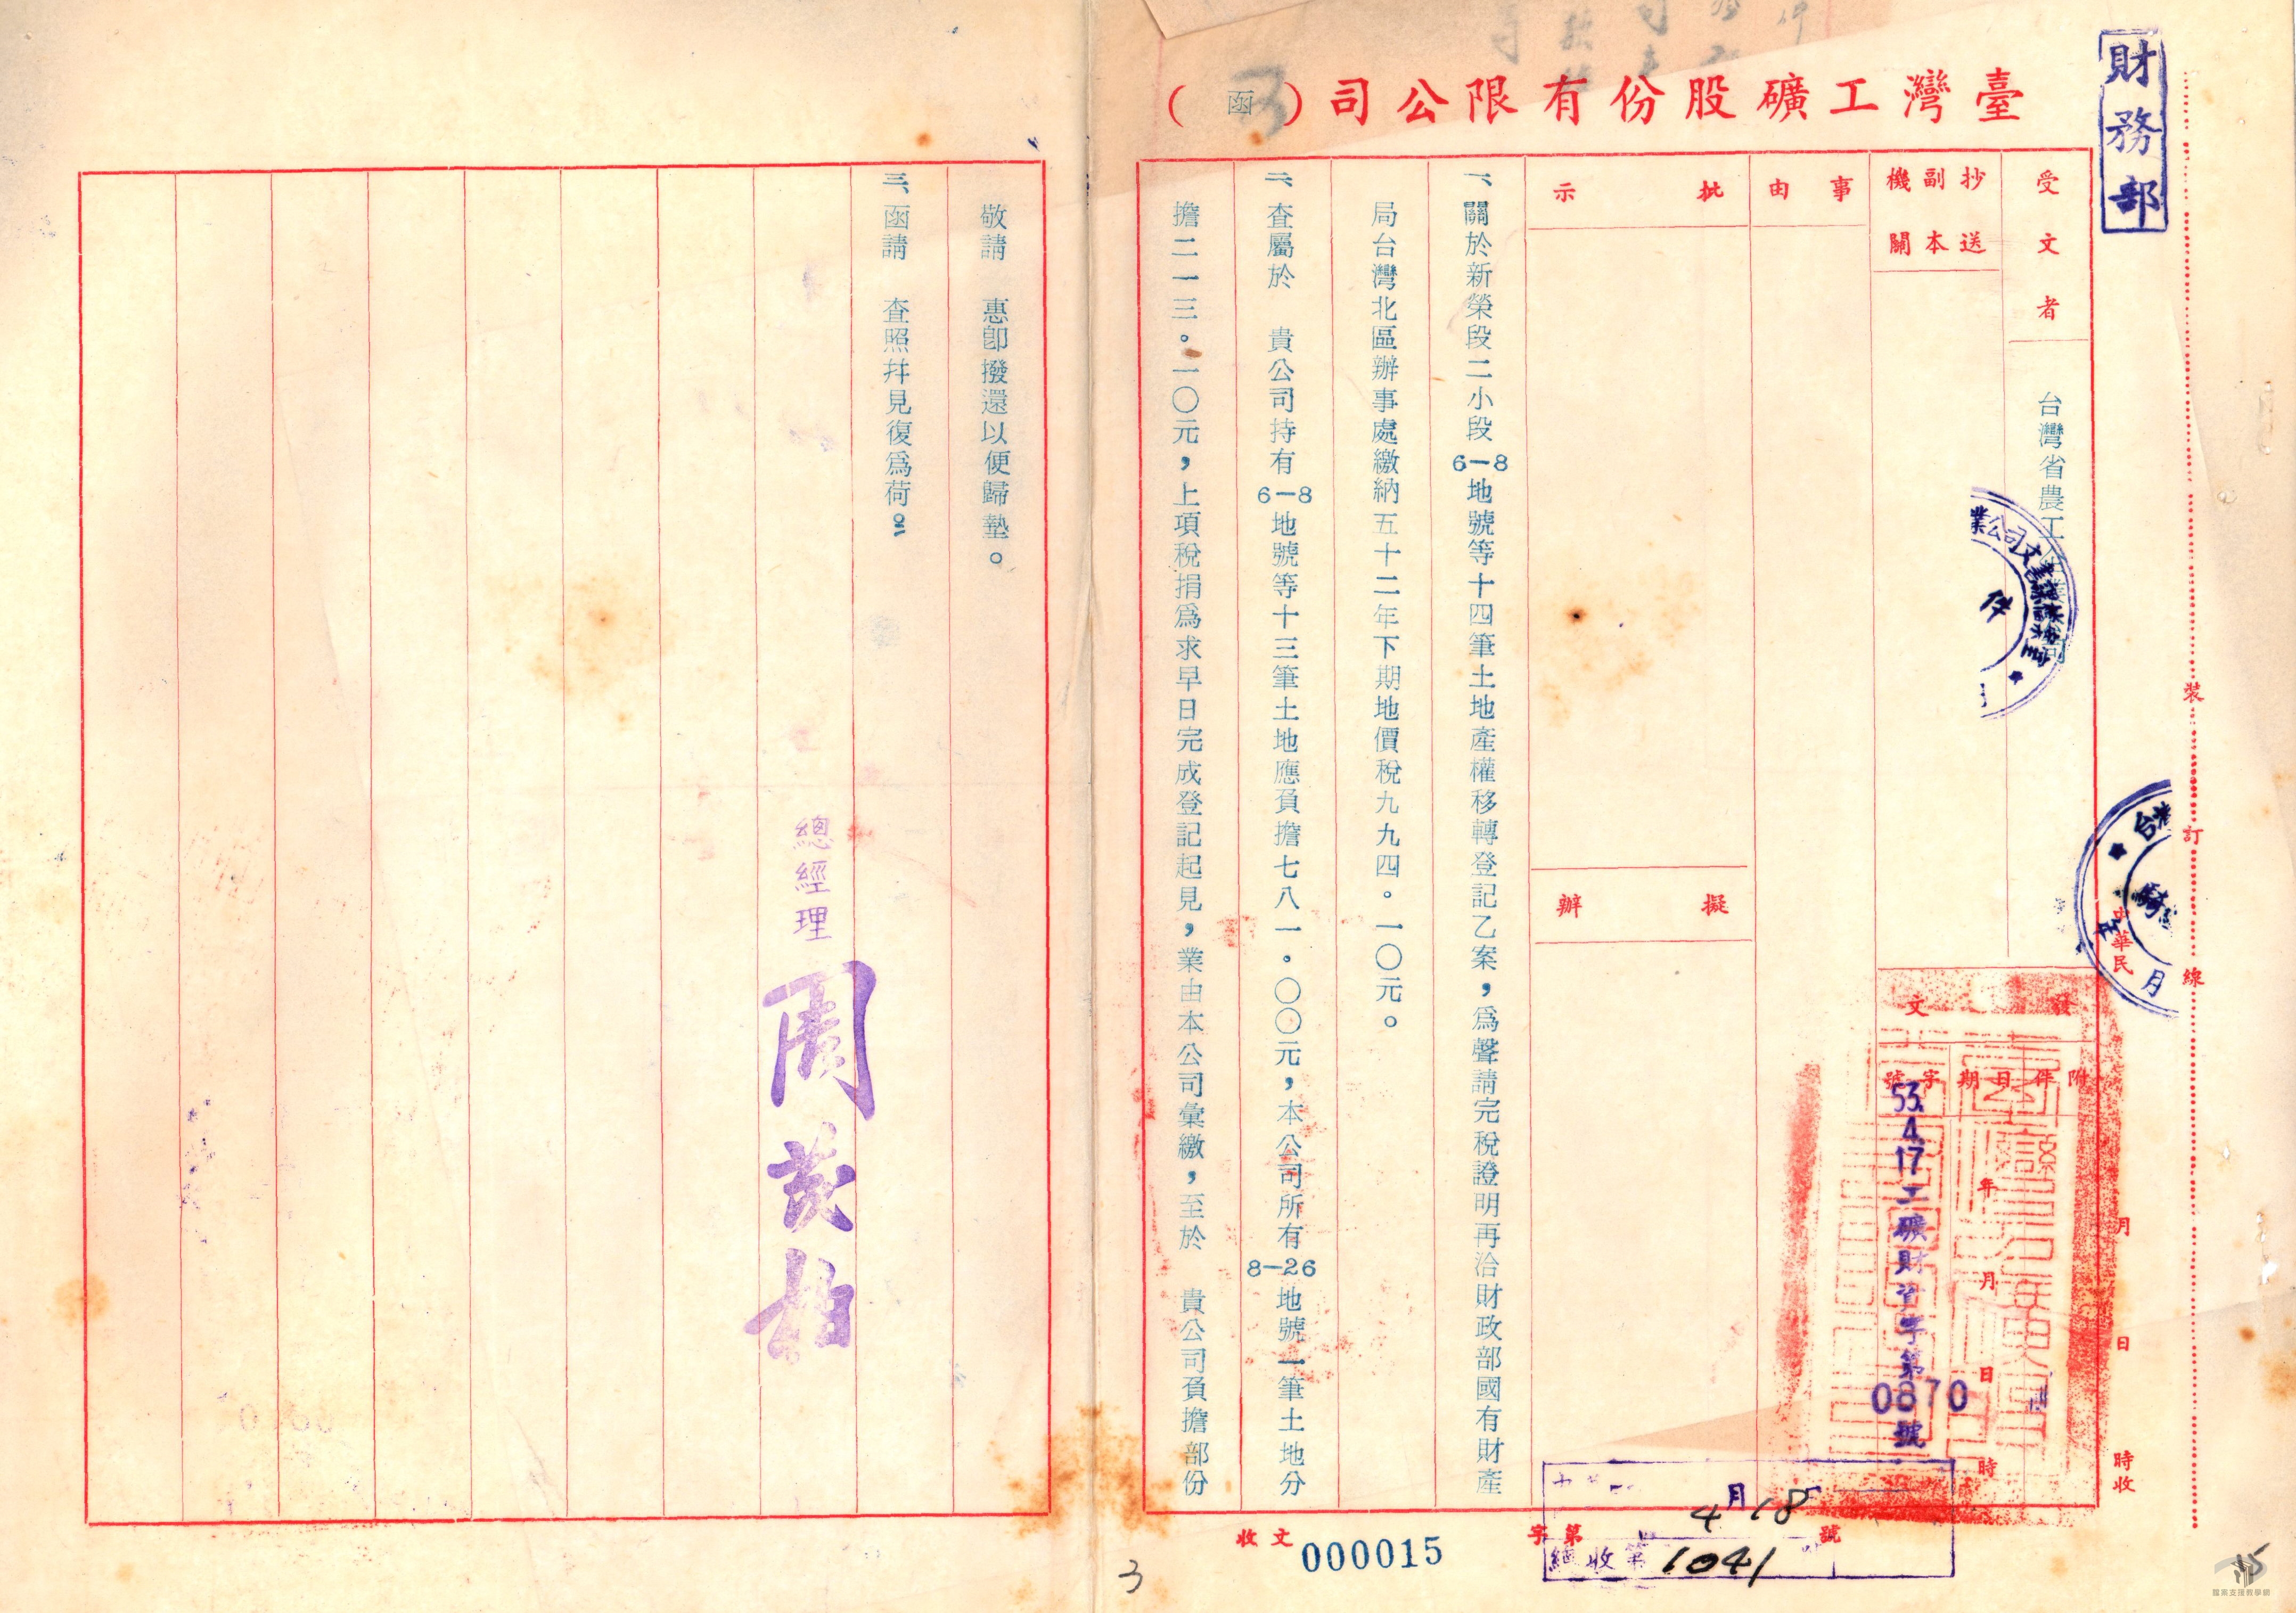 財務部
臺灣工礦股份有限公司（函）
受文者
台灣省農工
抄送
副本
機關
事由
批示
擬辦
發文
附件
日期
字號
年月日時
53.4.17工礦財資字第0870號
中華民
月日時收
裝訂線
一、關於新榮段二小段6-8地號等十四筆土地產權移轉登記乙案，爲聲請完稅證明再洽財政部國有財產
局台灣北區辦事處繳納五十二年下期地價稅九九四。一〇元。
二、查屬於　貴公司持有6-8地號等十三筆土地應負擔七八一。〇〇元，本公司所有8-26地號一筆土地分
擔二一三。一〇元，上項稅捐爲求早日完成登記起見，業由本公司彙繳，至於　貴公司負擔部份
敬請　惠卽撥還以便歸墊。
三、函請　查照幷見復爲荷。
總經理
業公司文書課
件
台灣
月
收文
字第
號
4月18
總收第1041
000015
3
15
檔案支援教學網